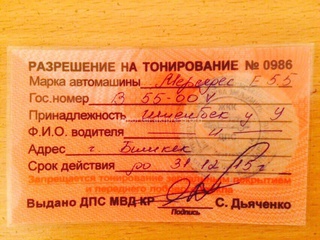 РАЗРЕШЕНИЕ НА ТОНИРОВАНИЕ № 0986
Марка автомашины Мерседес Е 55
Гос.номер В 55-00
Принадлежность
Ф.И.О. водителя
Адрес г Бишкек
Срок действия до 31.12.15г
Запрещается тонирование покрытием
и переднего
Выдано ДПС МВД КР С. Дьяченко
Подпись